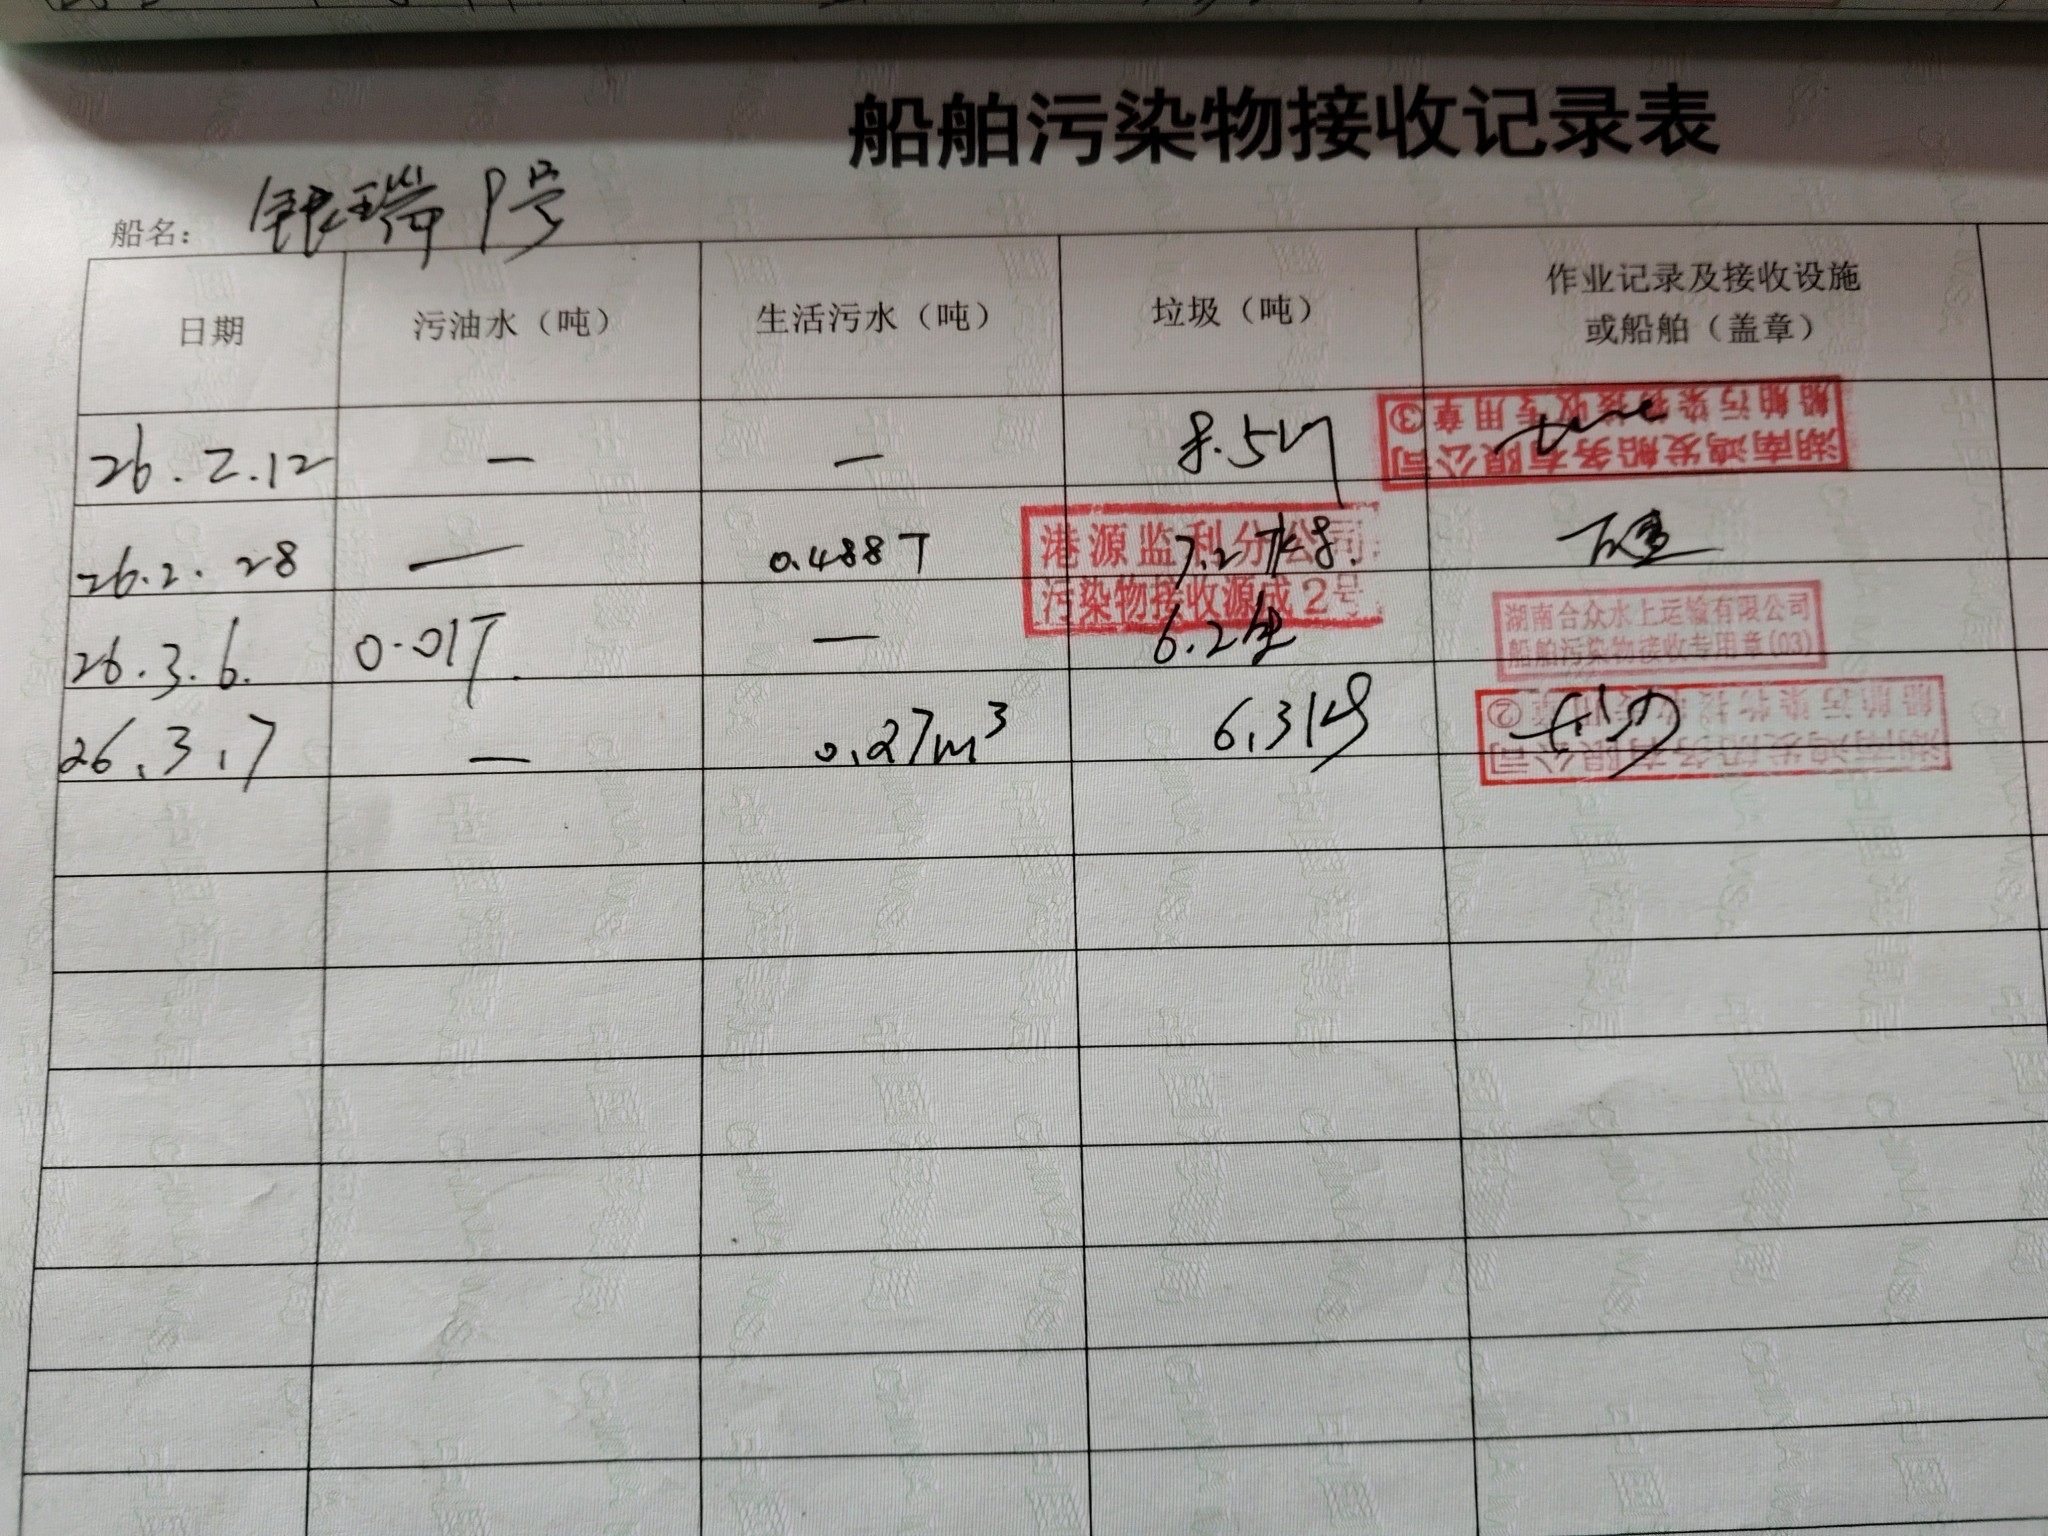 船舶污染物接收记录表
船名: 银瑞1号
日期 污油水（吨） 生活污水（吨） 垃圾（吨） 作业记录及接收设施或船舶（盖章）
26.2.12 — — 8.5
湖南鸿发船务有限公司
船舶污染物接收专用章③
26.2.28 — 0.488T 7.2
港源监利分公司
污染物接收源成2号
26.3.6. 0.01T. — 6.2
湖南合众水上运输有限公司
船舶污染物接收专用章(03)
26.3.7 — 0.27m³ 6.3kg
湖南鸿发船务有限公司
船舶污染物接收专用章②